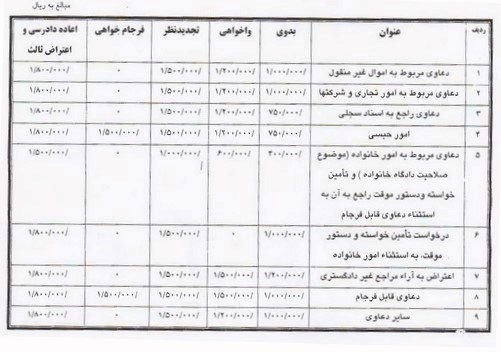 مبالغ به ریال
ردیف عنوان بدوی واخواهی تجدیدنظر فرجام خواهی اعاده دادرسی و اعتراض ثالث
۱ دعاوی مربوط به اموال غیر منقول ۱/۰۰۰/۰۰۰/ ۱/۲۰۰/۰۰۰/ ۱/۵۰۰/۰۰۰/ ۰ ۱/۸۰۰/۰۰۰/
۲ دعاوی مربوط به امور تجاری و شرکتها ۱/۰۰۰/۰۰۰/ ۱/۲۰۰/۰۰۰/ ۱/۵۰۰/۰۰۰/ ۰ ۱/۸۰۰/۰۰۰/
۳ دعاوی راجع به اسناد سجلی ۷۵۰/۰۰۰/ ۱/۲۰۰/۰۰۰/ ۱/۵۰۰/۰۰۰/ ۰ ۱/۸۰۰/۰۰۰/
۴ امور حبسی ۷۵۰/۰۰۰/ ۱/۲۰۰/۰۰۰/ ۱/۵۰۰/۰۰۰/ ۱/۵۰۰/۰۰۰/ ۱/۸۰۰/۰۰۰/
۵ دعاوی مربوط به امور خانواده (موضوع ۴۰۰/۰۰۰/ ۶۰۰/۰۰۰/ ۱/۰۰۰/۰۰۰/ ۰ ۱/۵۰۰/۰۰۰/
صلاحیت دادگاه خانواده ) و تأمین /
خواسته ودستور موقت راجع به آن به
استثناء دعاوی قابل فرجام
۶ درخواست تأمین خواسته و دستور ۱/۰۰۰/۰۰۰/ ۰ ۱/۵۰۰/۰۰۰/ ۰ ۱/۸۰۰/۰۰۰/
موقت، به استثناء امور خانواده
۷ اعتراض به آراء مراجع غیر دادگستری ۱/۲۰۰/۰۰۰/ ۱/۵۰۰/۰۰۰/ ۱/۵۰۰/۰۰۰/ ۰ ۱/۸۰۰/۰۰۰/
۸ دعاوی قابل فرجام ۱/۰۰۰/۰۰۰/ ۱/۵۰۰/۰۰۰/ ۱/۵۰۰/۰۰۰/ ۱/۵۰۰/۰۰۰/ ۱/۸۰۰/۰۰۰/
۹ سایر دعاوی ۱/۰۰۰/۰۰۰/ ۱/۲۰۰/۰۰۰/ ۱/۵۰۰/۰۰۰/ ۰ ۱/۸۰۰/۰۰۰/